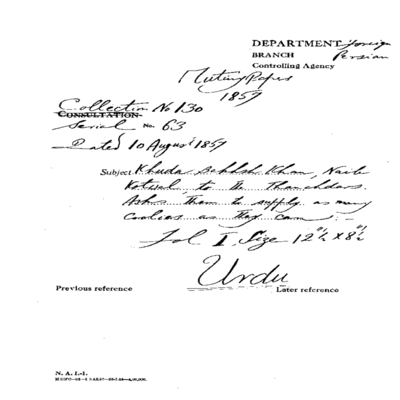 DEPARTMENT Foreign
BRANCH Persian
Controlling Agency
Mutiny Papers
1857
Collection No 130
CONSULTATION
Serial No. 63
Dated 10 August 1857
Subject Khuda Bakhsh Khan, Naib
Kotwal, to the Thanehdars.
Asks them to supply as many
Coolies as they can.
Fol I. Size 12½ x 8½
Urdu
Previous reference
Later reference
N. A. I.-1.